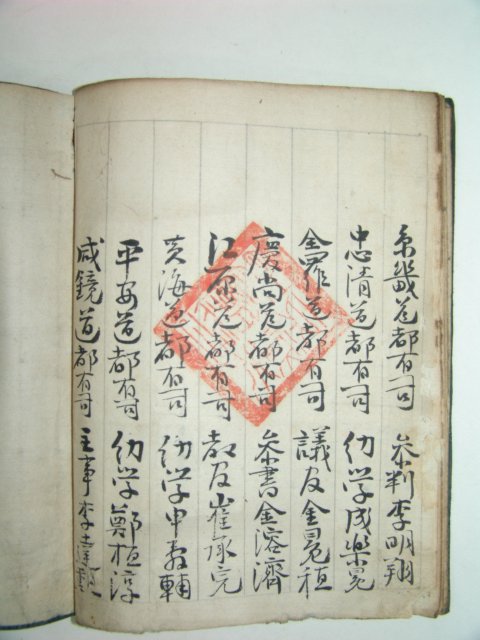 京畿道都有司 參判李明翔
忠清道都有司 幼学成樂冕
全羅道都有司 議官金冕植
慶尚道都有司 參書金溶濟
江原道都有司 都正崔承完
黃海道都有司 幼学申 輔
平安道都有司 幼学鄭植淳
咸鏡道都有司 主事李達